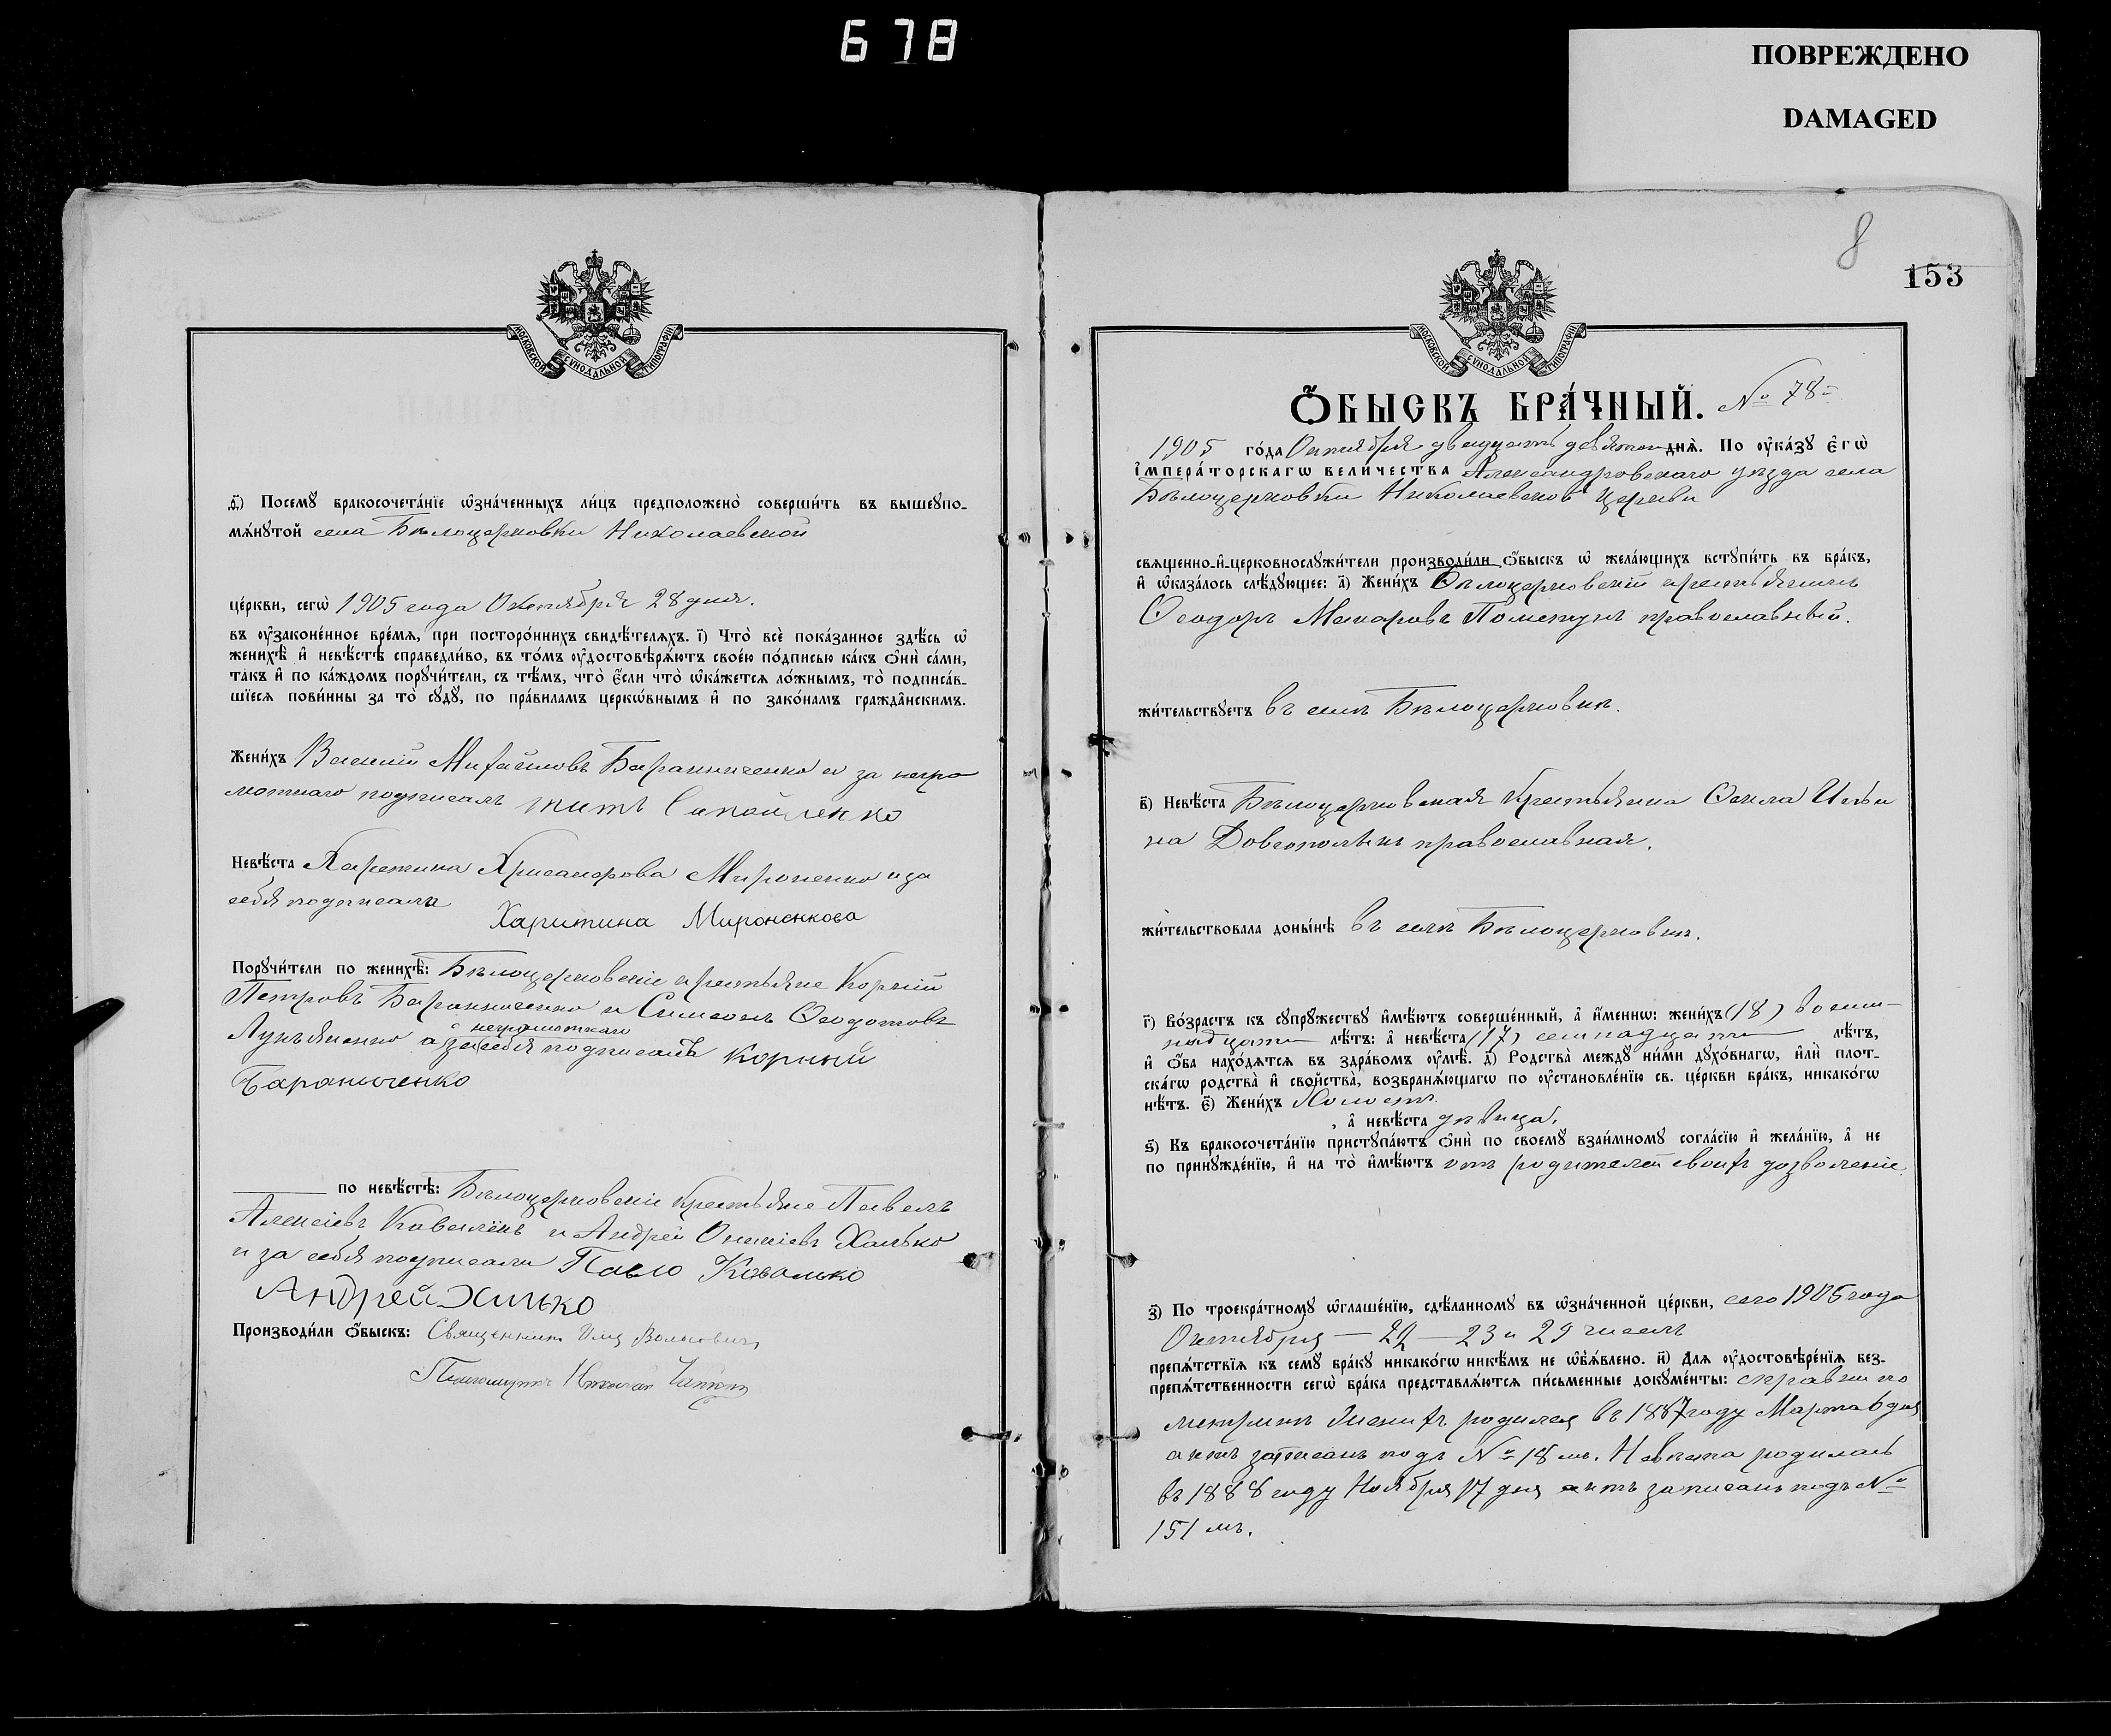 678
ПОВРЕЖДЕНО
DAMAGED
МОСКОВСКОЙ СѴНОДАЛЬНОЙ ТИПОГРАФІИ
Посемꙋ̀ бракосочета́нїе ѡ҆зна́ченныхъ ли́цъ предположено̀ соверши́ть въ вышеупо-
мѧ́нꙋтой села Бѣлоцерковки Николаевской
це́ркви, сегѡ̀ 1905 года Октября 28 дня.
въ ᲂу҆зако́ненное вре́мѧ, при посторо́ннихъ свидѣ́телѧхъ. і҃) Что̀ всѐ пока́занное здѣ́сь ѡ҆
женихѣ̀ и҆ невѣ́стѣ справедли́во, въ то́мъ ᲂу҆достовѣрѧ́ютъ свое́ю по́дписью ка́къ ѻ҆нѝ са́ми,
та́къ и҆ по ка́ждомъ порꙋчи́тели, съ тѣ́мъ, что̀ є҆́сли что̀ ѡ҆ка́жетсѧ ло́жнымъ, то̀ подписа́в-
шїесѧ пови́нны за то̀ сꙋдꙋ̀, по пра́виламъ церкѡ́внымъ и҆ по зако́намъ гражда̑нскимъ.
Жени́хъ Василій Михайловъ Баранниченко а за негра
мотнаго подписалъ Титъ Самойленко
Невѣ́ста Харитина Хрисанфова Мироненко и за
себя подписала
Харитина Мироненкова
Порꙋчи́тели по женихѣ̀: Бѣлоцерковскіе крестьяне Корній
Петровъ Баранниченко и Симеонъ Ѳеодотовъ
неграмотнаго
Лукьяненко а за себя подписалъ Корній
Бараниченко
по невѣ́стѣ: Бѣлоцерковскіе крестьяне Павелъ
Алексіевъ и Андрей Хилько
и за себя подписали Павло Ковалько
Андрей Хилько
Производи́ли ѻ҆́быскъ: Священникъ
Псаломщикъ Николай
8
153
МОСКОВСКОЙ СѴНОДАЛЬНОЙ ТИПОГРАФІИ
Ѻ҆́БЫСКЪ БРА́ЧНЫЙ. № 78
1905 го́да Октября двадцать девятаго днѧ̀. По ᲂу҆ка́зꙋ є҆гѡ̀
і҆мпера́торскагѡ вели́чества Александровскаго уѣзда села
Бѣлоцерковки Николаевской церкви
свѧще́нно-и҆-церковнослꙋжи́тели производи́ли ѻ҆́быскъ ѡ҆ жела́ющихъ встꙋпи́ть въ бра́къ,
и҆ ѡ҆каза́лось слѣ́дꙋющее: а҃) Жени́хъ Бѣлоцерковскій крестьянинъ
Ѳеодоръ Макаровъ Пометунъ православный.
жи́тельствꙋетъ въ селѣ Бѣлоцерковкѣ.
в҃) Невѣ́ста Бѣлоцерковская крестьянка Ѳекла Ильи
на православная.
жи́тельствовала доны́нѣ въ селѣ Бѣлоцерковкѣ.
г҃) Во́зрастъ къ сꙋпрꙋ́жествꙋ и҆мѣ́ютъ соверше́нный, а҆ и҆́меннѡ: жени́хъ (18) восем-
надцати лѣ́тъ: а҆ невѣ́ста (17) семнадцати лѣ́тъ,
и҆ ѻ҆́ба нахо́дѧтсѧ въ здра́вомъ ᲂу҆мѣ̀. д҃) Родства̀ междꙋ ни́ми дꙋхо́внагѡ, и҆лѝ плот-
ска́гѡ родства̀ и҆ сво́йства̀, возбранѧ́ющагѡ по ᲂу҆становле́нїю св. це́ркви бра́къ, никако́гѡ
нѣ́тъ. є҃) Жени́хъ Холостъ.
, а҆ невѣ́ста дѣвица.
ѕ҃) Къ бракосочета́нїю пристꙋпа́ютъ ѻ҆нѝ по своемꙋ̀ взаи́мномꙋ согла́сїю и҆ жела́нїю, а҆ не
по принꙋжде́нїю, и҆ на то̀ и҆мѣ́ютъ отъ родителей своихъ дозволеніе.
з҃) По троекра́тномꙋ ѡ҆глаше́нїю, сдѣ́ланномꙋ въ ѡ҆зна́ченной це́ркви, сего 1905 года
Октября — 22 — 23 и 29 чиселъ
препѧ́тствїѧ къ семꙋ̀ бра́кꙋ никако́гѡ никѣ́мъ не ѡ҆б̾ѧ́влено. и҃) Длѧ ᲂу҆достовѣре́нїѧ без-
препѧ́тственности сегѡ̀ бра́ка представлѧ́ютсѧ пи́сьменные докꙋме́нты: справки по
метрикѣ Женихъ родился въ 1887 году Марта 6 дня
актъ записанъ подъ № 18 мъ. Невѣста родилась
въ 1888 году Ноября 17 дня актъ записанъ подъ №
151 мъ.